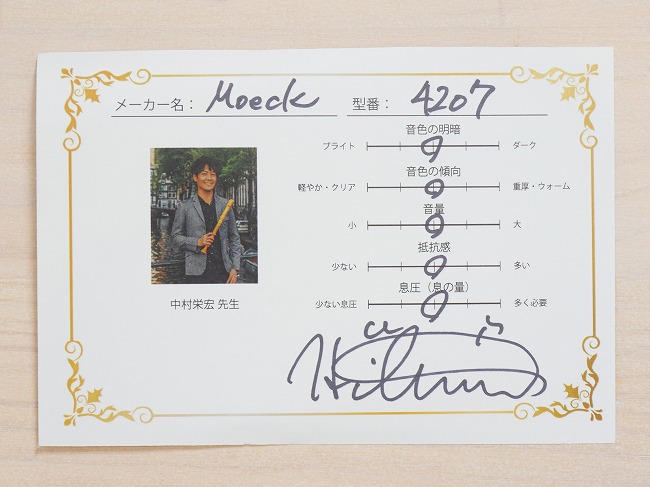 メーカー名： Moeck 型番： 4207
音色の明暗
ブライト ダーク
音色の傾向
軽やか・クリア 重厚・ウォーム
音量
小 大
抵抗感
少ない 多い
息圧（息の量）
少ない息圧 多く必要
中村栄宏 先生